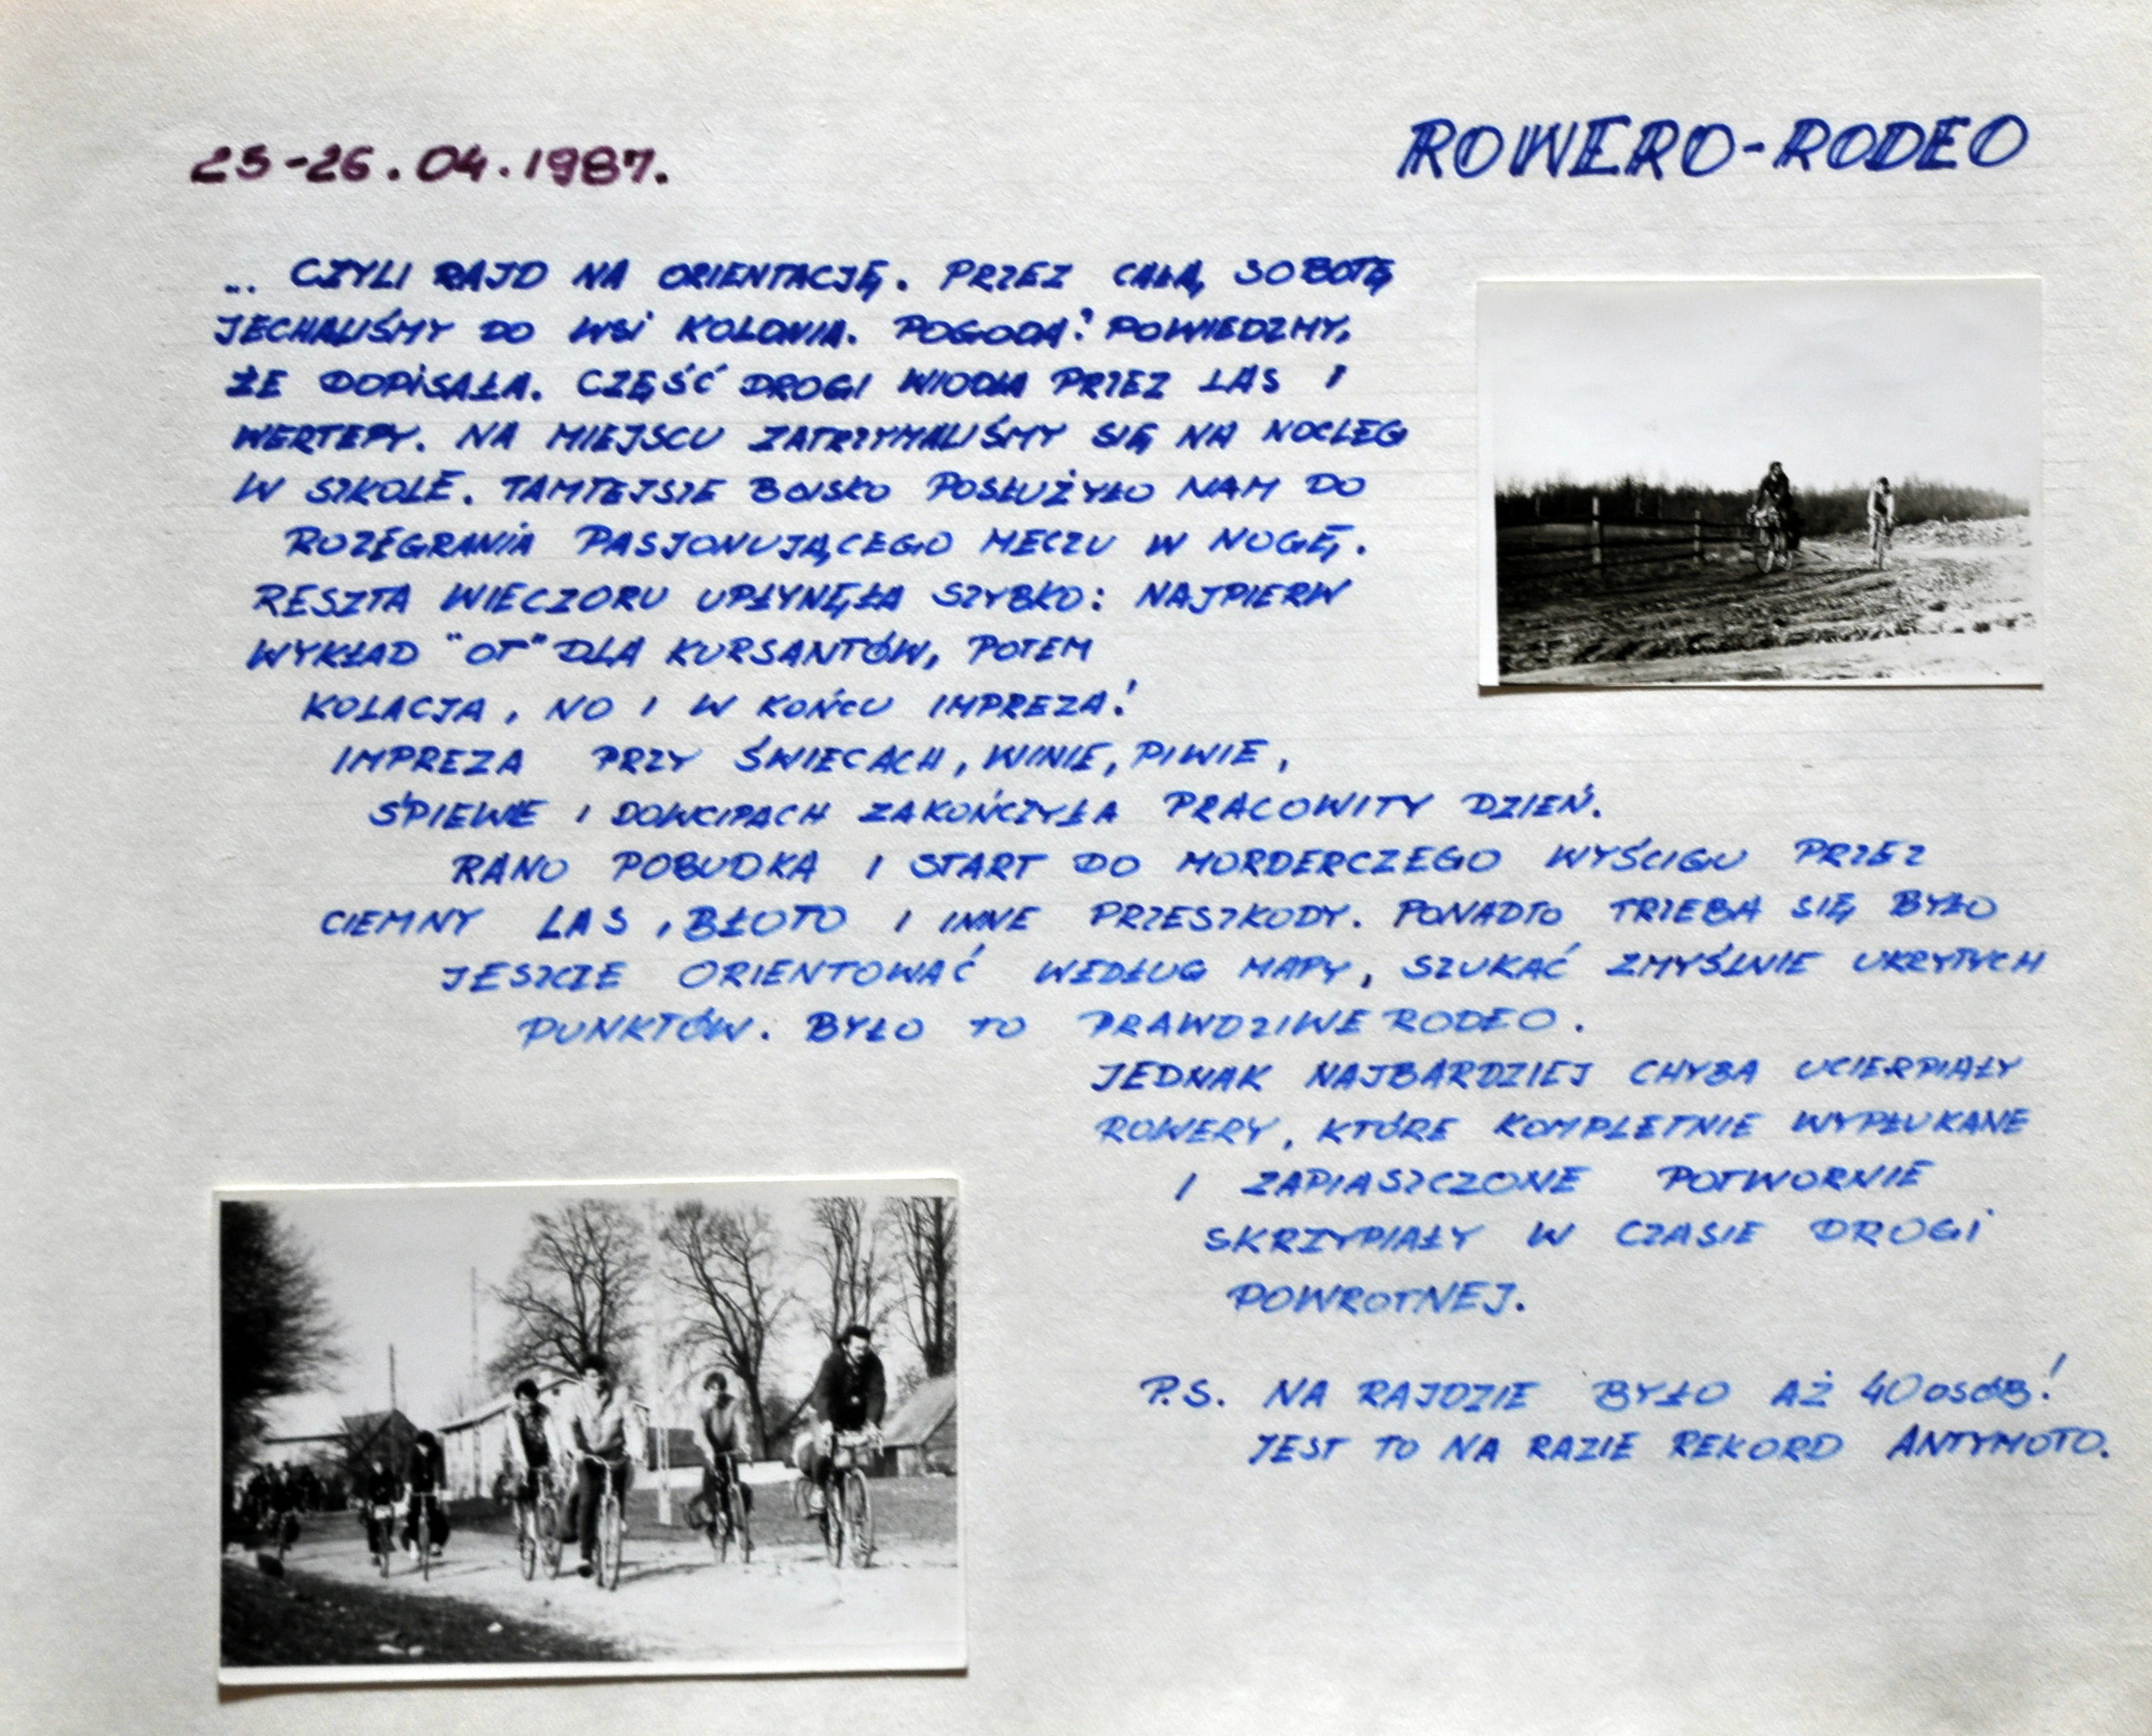 25-26.04.1987.
ROWERO-RODEO
... CZYLI RAJD NA ORIENTACJĘ. PRZEZ CAŁĄ SOBOTĘ
JECHALIŚMY DO WSI KOLONIA. POGODA? POWIEDZMY,
ŻE DOPISAŁA. CZĘŚĆ DROGI WIODŁA PRZEZ LAS I
WERTEPY. NA MIEJSCU ZATRZYMALIŚMY SIĘ NA NOCLEG
W SZKOLE. TAMTEJSZE BOISKO POSŁUŻYŁO NAM DO
ROZEGRANIA PASJONUJĄCEGO MECZU W NOGĘ.
RESZTA WIECZORU UPŁYNĘŁA SZYBKO: NAJPIERW
WYKŁAD "OT" DLA KURSANTÓW, POTEM
KOLACJA, NO I W KOŃCU IMPREZA!
IMPREZA PRZY ŚWIECACH, WINIE, PIWIE,
ŚPIEWIE I DOWCIPACH ZAKOŃCZYŁA PRACOWITY DZIEŃ.
RANO POBUDKA I START DO MORDERCZEGO WYŚCIGU PRZEZ
CIEMNY LAS, BŁOTO I INNE PRZESZKODY. PONADTO TRZEBA SIĘ BYŁO
JESZCZE ORIENTOWAĆ WEDŁUG MAPY, SZUKAĆ ZMYŚLNIE UKRYTYCH
PUNKTÓW. BYŁO TO PRAWDZIWE RODEO.
JEDNAK NAJBARDZIEJ CHYBA UCIERPIAŁY
ROWERY, KTÓRE KOMPLETNIE WYPŁUKANE
I ZAPIASZCZONE POTWORNIE
SKRZYPIAŁY W CZASIE DROGI
POWROTNEJ.
P.S. NA RAJDZIE BYŁO AŻ 40 OSÓB!
JEST TO NA RAZIE REKORD ANTYMOTO.